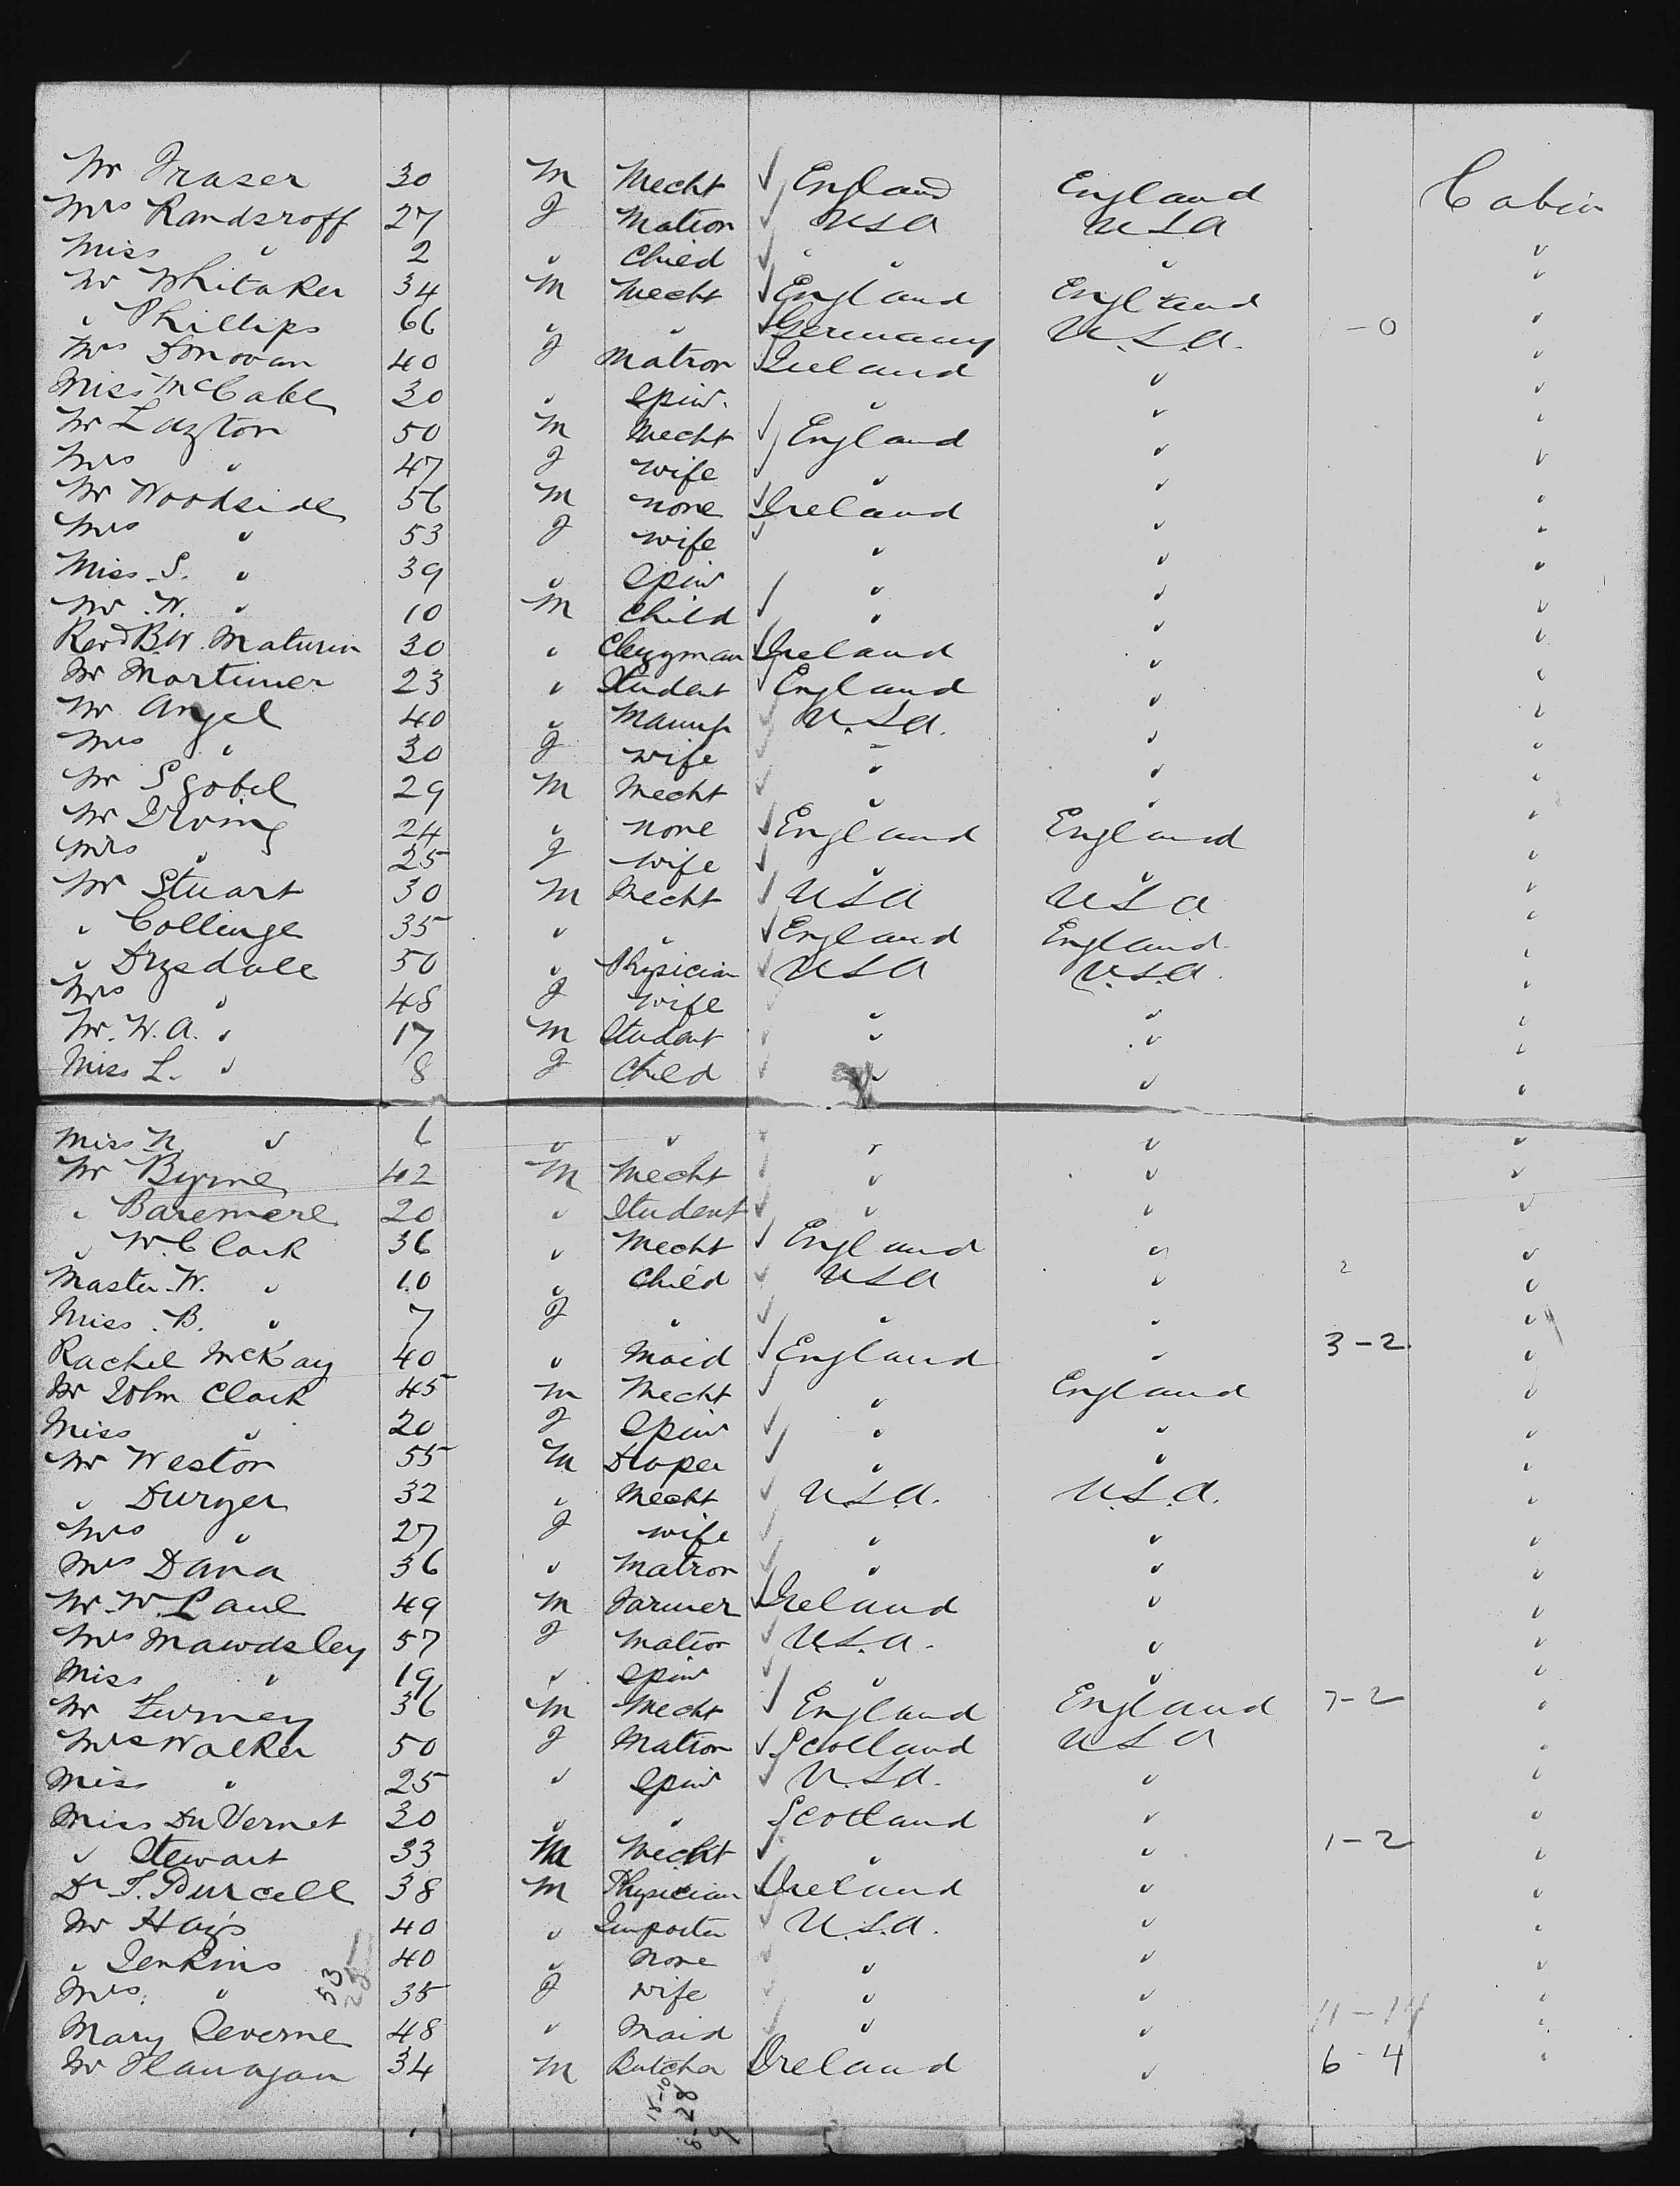 Mr Fraser 30 M Mecht England England Cabin
Mrs Randsroff 27 F Matron USA USA
Miss " 2 " Child " " " "
Mr Whitaker 34 M Mecht England England "
" Phillips 66 " " Germany U.S.A. -0 "
Mrs Donovan 40 F Matron Ireland " "
Miss McCabe 30 " Spin. " " "
Mr Layton 50 M Mecht England " "
Mrs " 47 F Wife " " "
Mr Woodside 56 M none Ireland " "
Mrs " 53 F Wife " " "
Miss S. " 39 " Spin " " "
Mr W. " 10 M Child " " "
Revd B.W. Maturin 30 " Clergyman Ireland " "
Mr Mortimer 23 " Student England " "
Mr Angel 40 " Manuf U.S.A. " "
Mrs " 30 F Wife " " "
Mr Sgobel 29 M Mecht " " "
Mr Irving 24 " none England England "
Mrs " 25 F Wife " " "
Mr Stuart 30 M Mecht USA USA "
" Collinge 35 " " England England "
" Drysdale 50 " Physician USA U.S.A. "
Mrs " 48 F Wife " " "
Mr. W. A. " 17 M Student " " "
Miss L. " 8 F Child " " "
Miss N " 6 " " " " "
Mr Byrne 42 M Mecht " " "
" Baremere 20 " Student " " "
" W. Clark 36 " Mecht England " "
Master W. " 10 " Child USA " 2 "
Miss B. " 7 F " " " "
Rachel McKay 40 " Maid England " 3-2 "
Mr John Clark 45 M Mecht " England "
Miss " 20 F Spin " " "
Mr Weston 55 M Draper " " "
" Duryer 32 " Mecht U.S.A. U.S.A. "
Mrs " 27 F Wife " " "
Mrs Dana 36 " Matron " " "
Mr W. Paul 49 M Farmer Ireland " "
Mrs Mawdsley 57 F Matron U.S.A. " "
Miss " 19 " Spin " " "
Mr Furney 36 M Mecht England England 7-2 "
Mrs Walker 50 F Matron Scotland USA "
Miss " 25 " Spin U.S.A. " "
Miss Du Vernet 30 " " Scotland " "
" Stewart 33 M Mecht " " 1-2 "
Dr T. Purcell 38 M Physician Ireland " "
Mr Hays 40 " Importer U.S.A. " "
" Jenkins 40 " None " " "
Mrs. " 35 F Wife " " "
Mary Leverne 48 " Maid " " 11-14 "
Mr Flanagan 34 M Butcher Ireland " 6-4 "
53
28